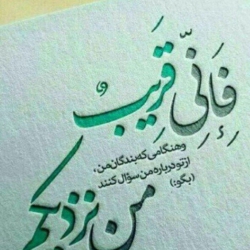 فَاِنِّی قَرِیبٌ
و هنگامی که بندگان من،
از تو درباره من سؤال کنند
(بگو:)
من نزدیکم